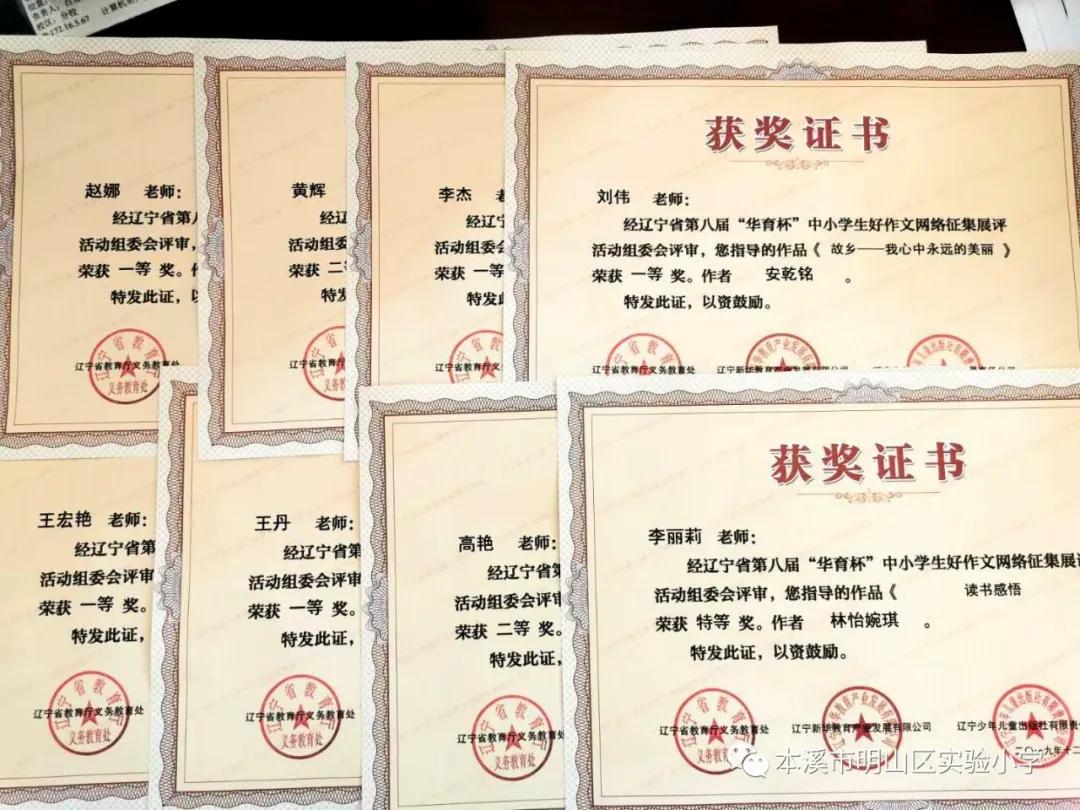 校区：分校
172.16.5.67
赵娜 老师：
经辽宁省第八
活动组委会评审，
荣获 一等 奖。
特发此证，以
辽宁省教育厅义务教育处
辽宁省教育厅
义务教育处
黄辉
经辽
活动组
荣获 二等
特发
辽宁省教育厅
李杰 老
经辽宁
活动组委
荣获 一等
特发
辽宁省教育厅
获奖证书
刘伟 老师：
经辽宁省第八届“华育杯”中小学生好作文网络征集展评
活动组委会评审，您指导的作品《 故乡——我心中永远的美丽 》
荣获 一等 奖。作者 安乾铭 。
特发此证，以资鼓励。
辽宁省教育厅义务教育处 辽宁新华教育产业发展有限公司
王宏艳 老师：
经辽宁省第
活动组委会评审
荣获 一等 奖。
特发此证，
辽宁省教育厅义务教育处
辽宁省教育厅
义务教育处
王丹 老师：
经辽宁省第
活动组委会评审
荣获 一等 奖。
特发此证，
辽宁省教育厅义务教育处
辽宁省教育厅
义务教育处
高艳 老师：
经辽宁省第
活动组委会评审
荣获 二等 奖。
特发此证，
辽宁省教育厅义务教育处
辽宁省教育厅
义务教育处
获奖证书
李丽莉 老师：
经辽宁省第八届“华育杯”中小学生好作文网络征集展评
活动组委会评审，您指导的作品《 读书感悟
荣获 特等 奖。作者 林怡婉琪 。
特发此证，以资鼓励。
辽宁省教育厅义务教育处 辽宁新华教育产业发展有限公司 辽宁少年儿童出版社有限责
二〇一九年十二
本溪市明山区实验小学